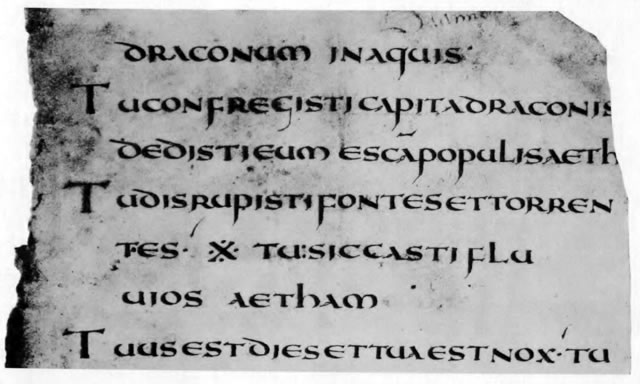 DRACONUM INAQUIS·
TUCONFREGISTI CAPITADRACONIS
DEDISTIEUM ESCĀPOPULISAETH
TUDISRUPISTIFONTESETTORREN
TES· ※ TU:SICCASTI FLU
UIOS AETHAM
TUUSESTDIESETTUAESTNOX·TU